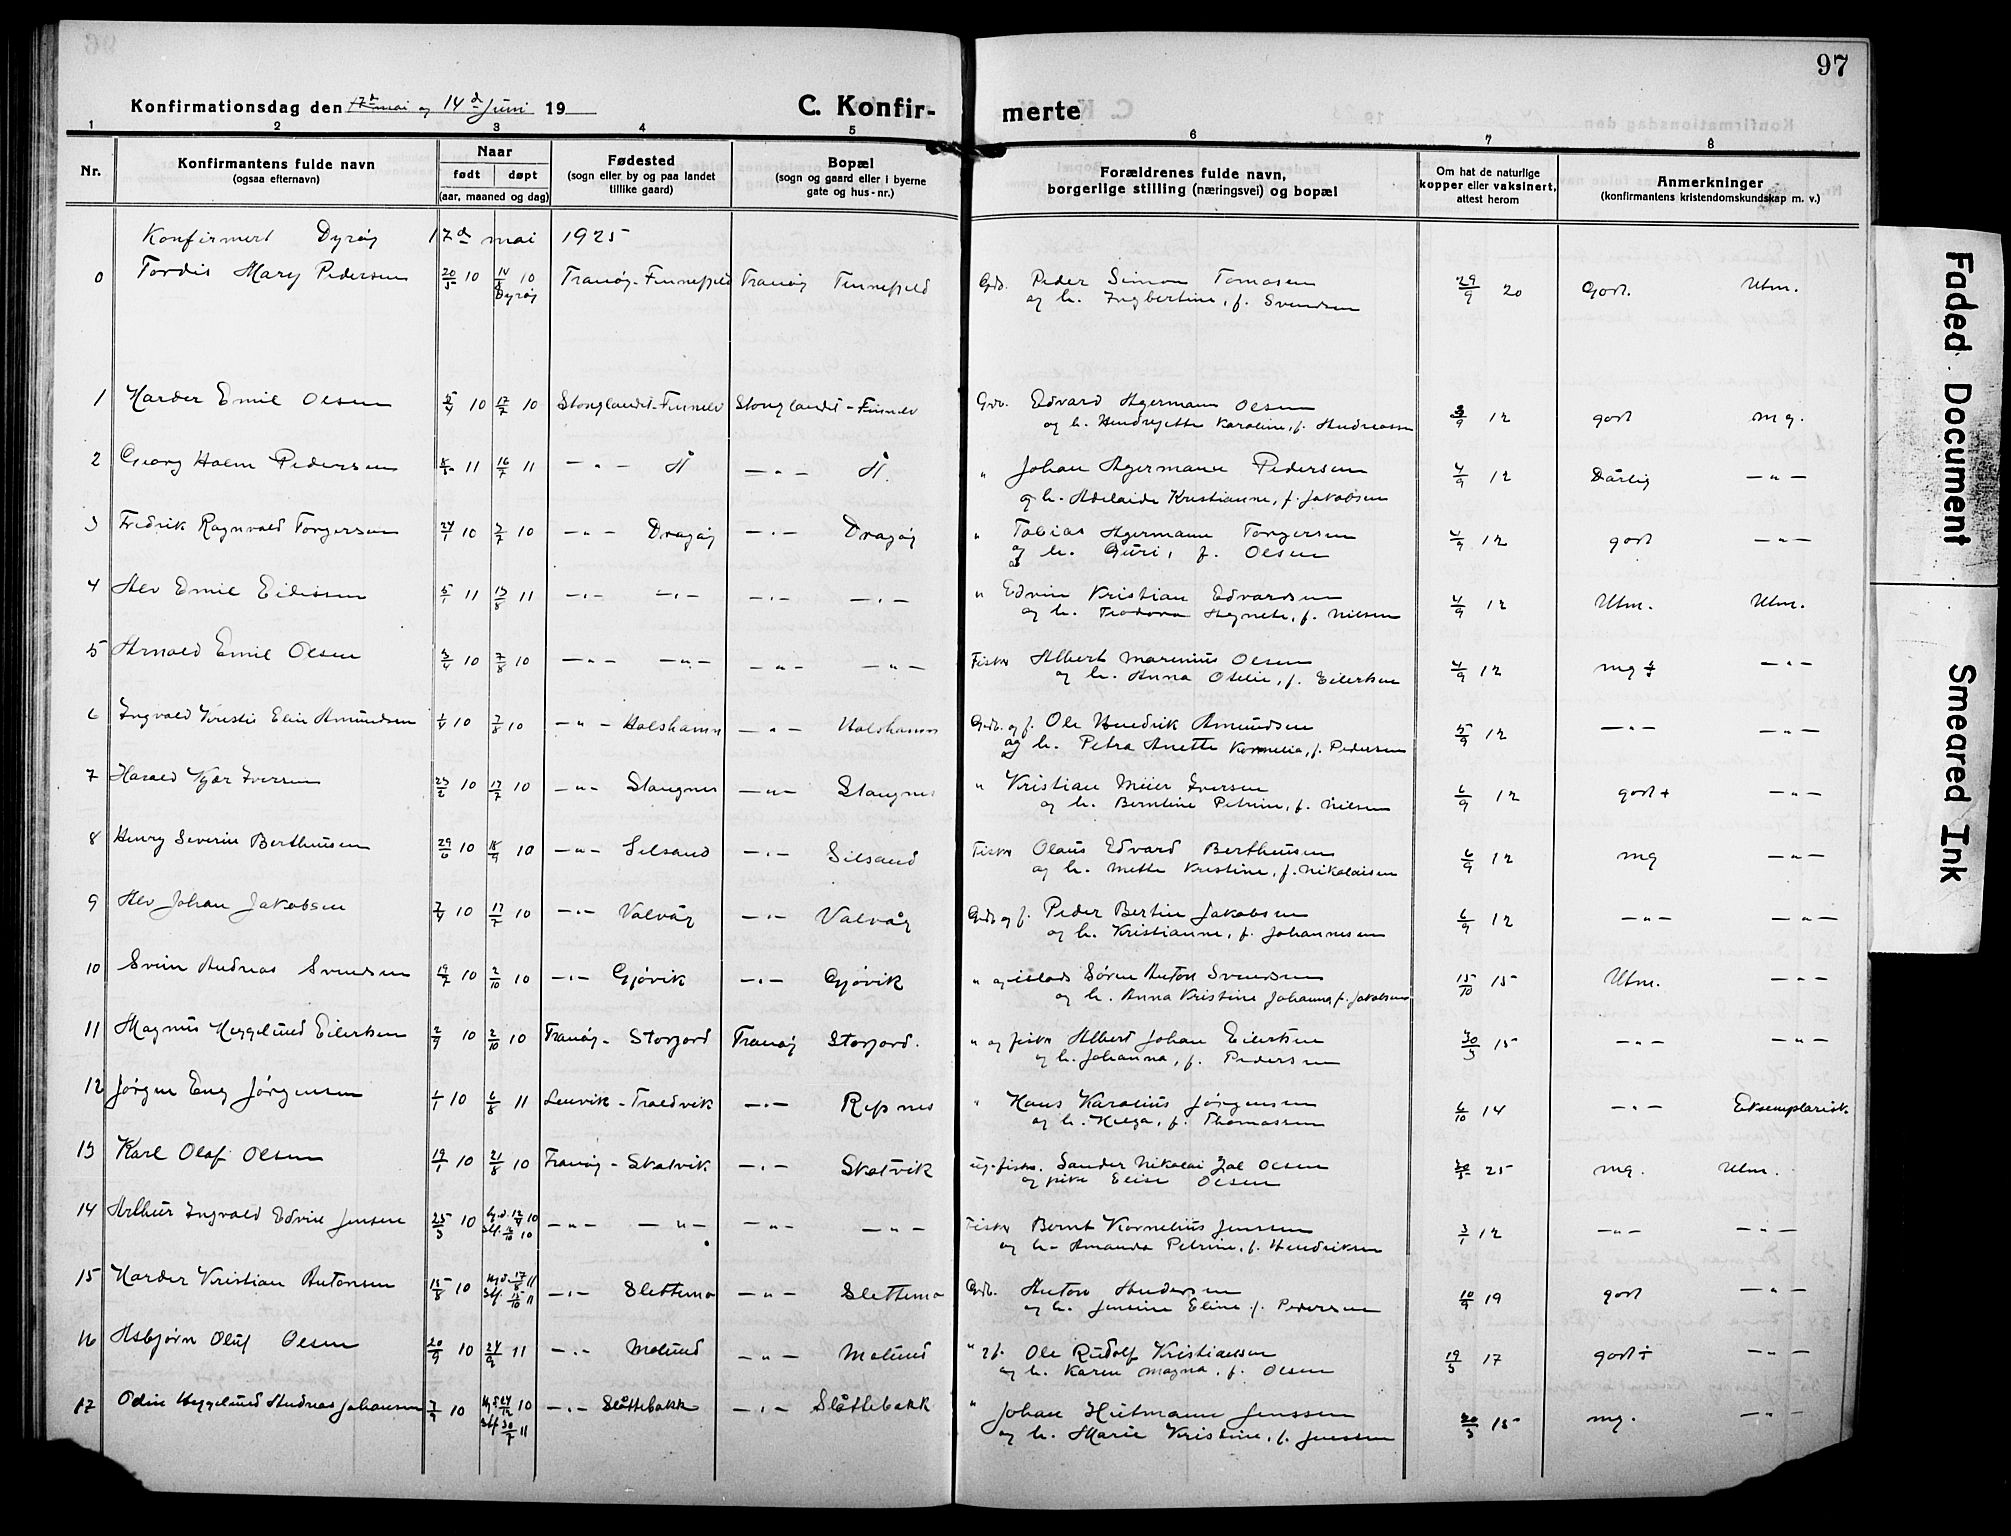 97
Konfirmationsdag den 17de mai og 14d Juni 19
C. Konfir-
merte
1 2 3 4 5 6 7 8
Nr.
Konfirmantens fulde navn
(ogsaa efternavn)
Naar
født døpt
(aar, maaned og dag)
Fødested
(sogn eller by og paa landet
tillike gaard)
Bopæl
(sogn og gaard eller i byerne
gate og hus-nr.)
Forældrenes fulde navn,
borgerlige stilling (næringsvei) og bopæl
Om hat de naturlige
kopper eller vaksinert,
attest herom
Anmerkninger
(konfirmantens kristendomskundskap m. v.)
Konfirmert Dyrøy 17d mai 1925
0 Tordis Mary Pedersen 20/5 10 14/8 10 Dyrøy Tranøy - Finnefjeld Tranøy Finnefjeld Gdb. Peder Simon Tomasen 29/9 20 Godt. Utm.
og h. Ingbertine, f. Svendsen
1 Harder Emil Olsen 5/4 10 17/7 10 Stonglandet - Finnelv Stonglandet - Finnelv Gdb. Edvard Hgermann Olsen 3/9 12 godt mg.
og h. Hendrejette Karoline, f. Andreassen
2 Georg Holm Pedersen 11 16/7 11 — " — Å — " — Å. " Johan Agermann Pedersen 4/9 12 Dårlig — " —
og h. Adelaide Kristianne, f. Jakobsen
3 Fredrik Ragnvald Torgersen 24/1 10 3/7 10 — " — Dragøy — " — Dragøy " Tobias Hgermann Torgersen 4/9 12 godt — " —
og h. Guri, f. Olsen
4 Alv Emil Eidissen 5/1 11 13/8 11 — " — — " — — " — — " — " Edvin Kristian Edvardsen 4/9 12 Utm. Utm.
og h. Teodora Agnete, f. Nilsen
5 Arnold Emil Olsen 3/4 10 7/8 10 — " — — " — — " — — " — Fisker Albert Marenius Olsen 4/9 12 mg ÷ — " —
og h. Anna Otelie, f. Eilertsen
6 Ingvald Kristie Elin Amundsen 1/4 10 7/8 10 — " — Holshamn — " — Holshamn Gdb. og f. Ole Hendrik Amundsen 5/9 12 — " — — " —
og h. Petra Anette Kornelia, f. Pedersen
7 Harald Kjær Iversen 23/2 10 17/7 10 — " — Slangnes — " — Slangnes " Kristian Meier Iversen 6/9 12 godt + — " —
og h. Berntine Petrine, f. Nilsen
8 Henry Severin Bertheusen 29/6 10 18/9 10 — " — Silsand — " — Silsand Fisker Olaus Edvard Bertheusen 6/9 12 mg — " —
og h. Mette Kristine, f. Nikolaisen
9 Alv Johan Jakobsen 7/4 10 17/7 10 — " — Valvåg — " — Valvåg Gdb og f. Peder Bertin Jakobsen 6/9 12 — " — — " —
og h. Kristianne, f. Johannesen
10 Svein Andreas Svendsen 19/7 10 2/10 10 — " — Gjøvik — " — Gjøvik " Søren Anton Svendsen 15/10 15 Utm. — " —
og h. Anna Kristine Johanna f. Jakobsen
11 Magnus Heggelund Eilertsen 2/9 10 2/10 10 Tranøy - Storjord Tranøy Storjord. " og fisker Albert Johan Eilertsen 30/3 15 — " — — " —
og h. Johanna, f. Pedersen
12 Jørgen Eng Jørgensen 1/1 10 6/8 11 Lenvik - Troldvik — " — Refsnes " Hans Karolius Jørgensen 6/10 14 — " — Eksemplarisk
og h. Helga, f. Thomassen
13 Karl Olaf Olsen 19/1 10 21/8 10 Tranøy - Skatvik — " — Skatvik ug. fisker. Sander Nikolai Olsen 25 mg. Utm.
og pike Elise Olsen
14 Arthur Ingvald Edvin Jensen 25/3 10 Hj.d. 12/4 10 Stf. 2/10 10 — " — — " — — " — — " — Fisker Bernt Kornelius Jensen 3/1 12 — " — — " —
og h. Amanda Petrine, f. Hendriksen
15 Harder Kristian Antonsen 15/8 10 Hj.d. 17/8 11 Stf. 15/10 11 — " — Slettemo — " — Slettemo Gdb. Anton Andersen 10/9 19 godt — " —
og h. Jensine Eline f. Pedersen
16 Asbjørn Oluf Olsen 20/9 10 24/9 11 — " — Molund — " — Molund " Ole Rudolf Kristiansen 19/3 17 godt ÷ — " —
og h. Karen Magna, f. Olsen
17 Odin Heggelund Andreas Johansen 7/9 10 Hj.d. 24/12 10 Stf. 30/7 11 — " — Slåttebakk — " — Slåttebakk " Johan Hutmann Jenssen 30/3 15 mg. — " —
og h. Marie Kristine, f. Jenssen
Faded Document
Smeared Ink